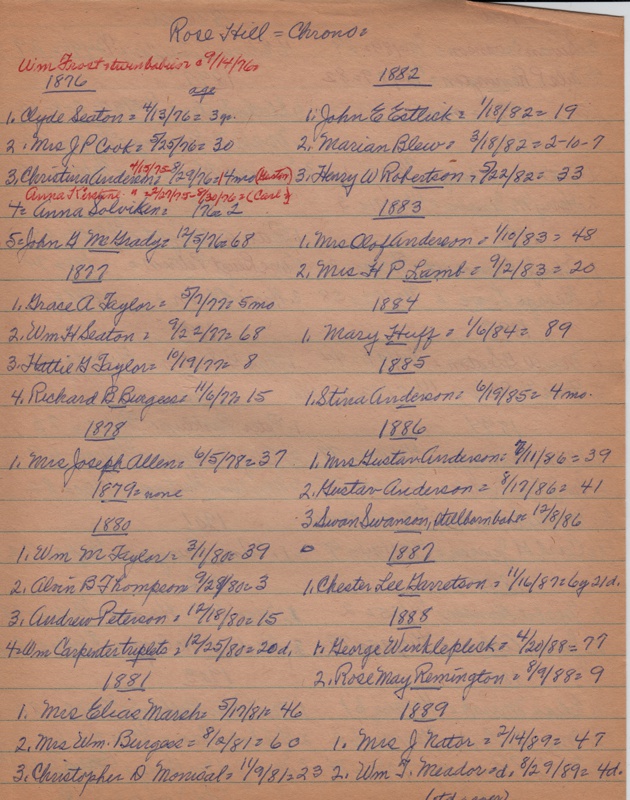 Rose Hill = Chrono=
Wm Frost = twin babies = 9/14/76=
1876
age
1. Clyde Seaton = 4/13/76 = 3 yr.
2. Mrs J P Cook = 5/25/76 = 30
4/15/75-8/29/76 = 14 mo (Gustav)
3. Christina Anderson=
Anna Kerstine " = 2/27/75-8/30/76 = (Carl)
4= Anna Solviken= 76= 2
5= John G McGrady= 12/5/76= 68
1877
1. Grace A Taylor = 5/7/77= 5 mo
2. Wm H Seaton = 9/22/77= 68
3. Hattie G Taylor= 10/19/77= 8
4. Richard B Burgess= 11/6/77= 15
1878
1. Mrs Joseph Allen= 6/5/78=37
1879= none
1880
1. Wm M Taylor= 3/1/80= 39
2. Alvin B Thompson 9/29/80= 3
3. Andrew Peterson = 12/18/80=15
4= Wm Carpenter triplets = 12/25/80=20 d.
1881
1. Mrs Elias Marsh= 5/17/81= 46
2. Mrs Wm. Burgess = 8/2/81= 60
3. Christopher D Monical= 11/9/81=23
1882
1. John E Estlick = 1/18/82= 19
2. Marian Blew = 3/18/82= 2-10-7
3. Henry W Robertson = 5/22/82= 33
1883
1. Mrs Olof Anderson = 1/10/83 = 48
2. Mrs H P Lamb = 9/2/83 = 20
1884
1. Mary Huff = 1/6/84= 89
1885
1. Stina Anderson= 6/19/85= 4 mo.
1886
1. Mrs Gustav Anderson= /11/86 = 39
2. Gustav Anderson = 8/17/86= 41
3 Swan Swanson, stillborn babe= 12/8/86
1887
1. Chester Lee Garretson = 11/16/87=6y 21d.
1888
1. George Winklepleck = 4/20/88= 77
2. Rose May Remington = 8/9/88= 9
1889
1. Mrs J Nattor = 2/14/89= 47
2. Wm T. Meador=d. 8/29/89= 4d.